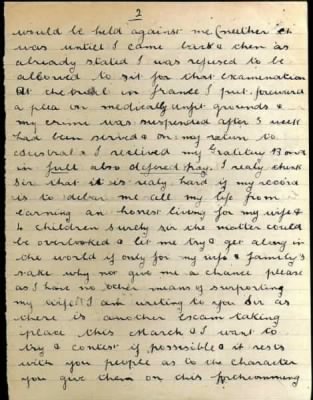 2
would be held against me (neither it
was untill I came back & then as
already stated I was refused to be
allowed to sit for that examenation
At the trial in france I put foreward
a plea on medically unfit grounds &
my crime was suspended after 3 week
had been served & on my return to
Austral & I received my Gratuity Bond
in full also defered pay. I realy think
sir that it is realy hard if my record
is to debar me all my life from
earning an honest living for my wife &
4 children surely sir the matter could
be overlooked & let me try & get along in
the world if only for my wife & family's
sake why not give me a chance please
as I have no other means of surporting
my wife I am writing to you Sir as
there is another exam taking
place this March & I want to
try & contest if possesible & it rests
with you people as to the character
you give them on this forthcomming